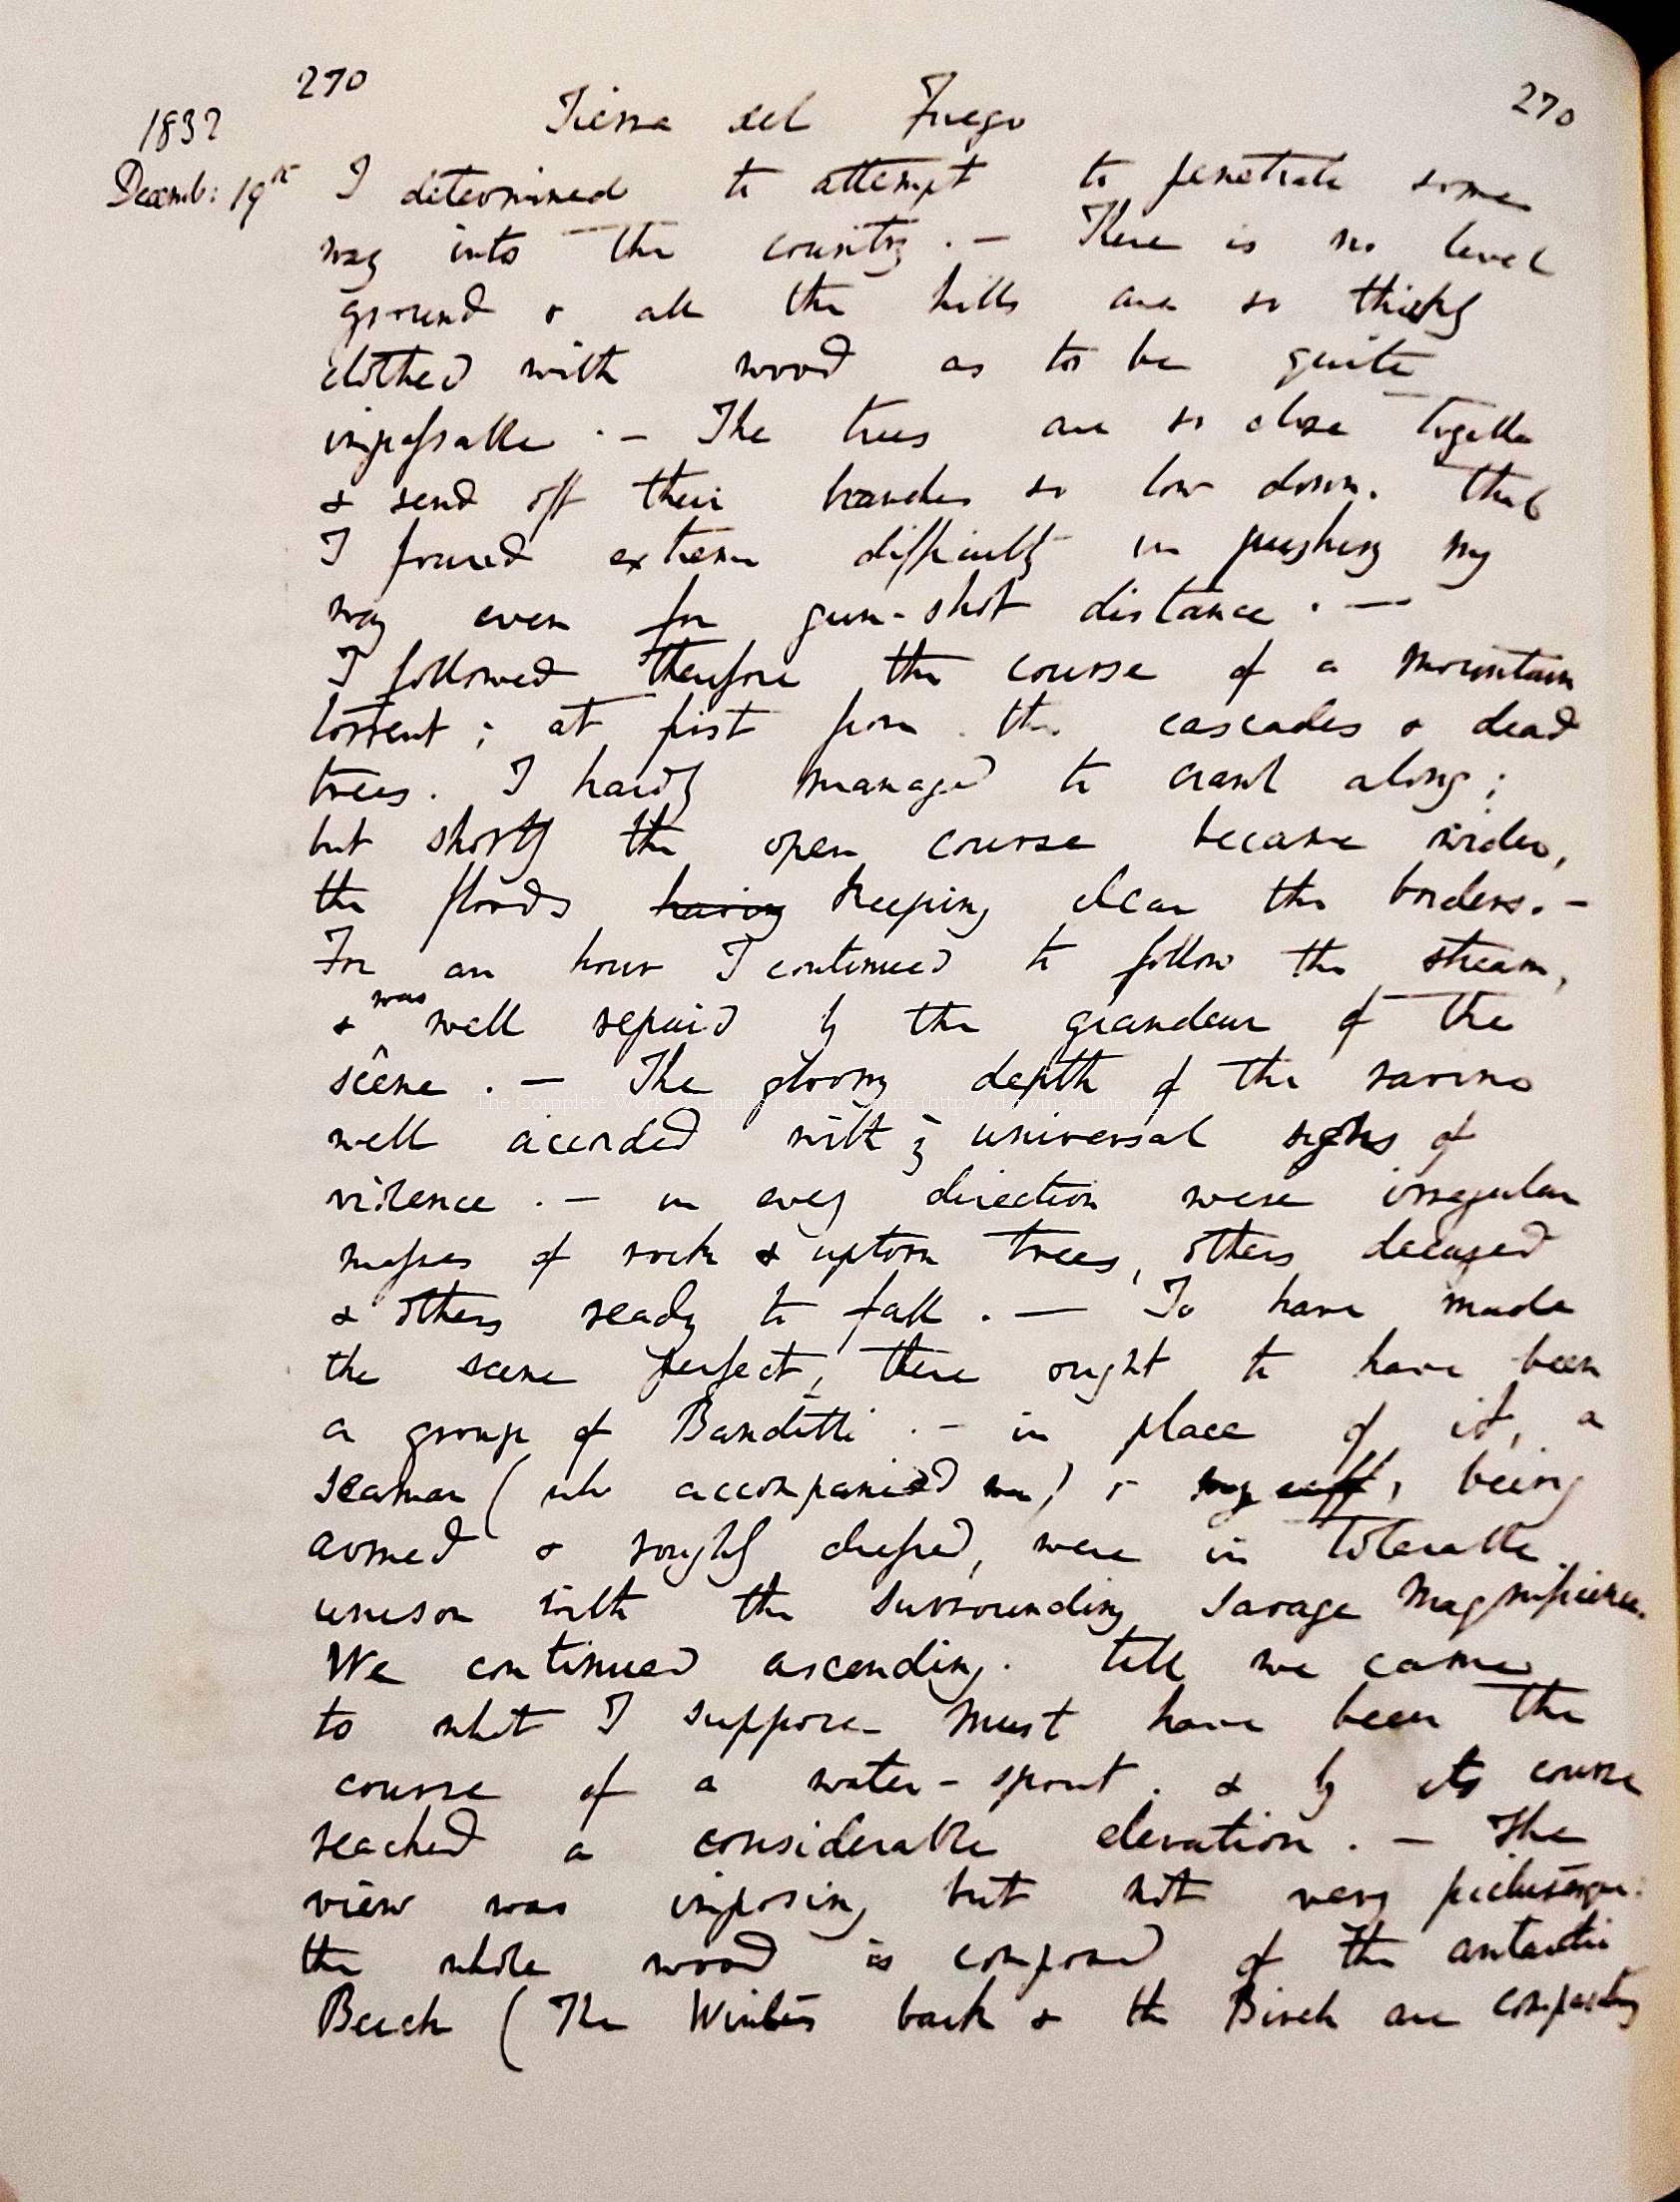 270
270
1832
Tierra del Fuego
Decemb: 19th I determined to attempt to penetrate some
way into the country . — There is no level
ground & all the hills are so thickly
clothed with wood as to be quite
impassable . — The trees are so close together
& send off their branches so low down. that
I found extreme difficulty in pushing my
way even for gun-shot distance . —
I followed therefore the course of a mountain
torrent ; at first from the cascades & dead
trees. I hardly managed to crawl along ;
but shortly the open course became wider,
the floods having keeping clear the borders. —
For an hour I continued to follow the stream,
was
& well repaid by the grandeur of the
scene . — The gloomy depth of the ravine
well accorded with ye universal signs of
violence . — in every direction were irregular
masses of rock & uptorn trees, others decayed
& others ready to fall . — To have made
the scene perfect, there ought to have been
a group of Banditti . — in place of it, a
seaman ( who accompanied me ) & myself, being
armed & roughly dressed, were in tolerable
unison with the surrounding savage Magnificence.
We continued ascending. till we came
to what I suppose must have been the
course of a water-spout . & by its course
reached a considerable elevation . — The
view was imposing but not very picturesque:
the whole wood is composed of the antarctic
Beech ( The Winters bark & the Birch are comparatively
The Complete Work of Charles Darwin Online (http://darwin-online.org.uk/)